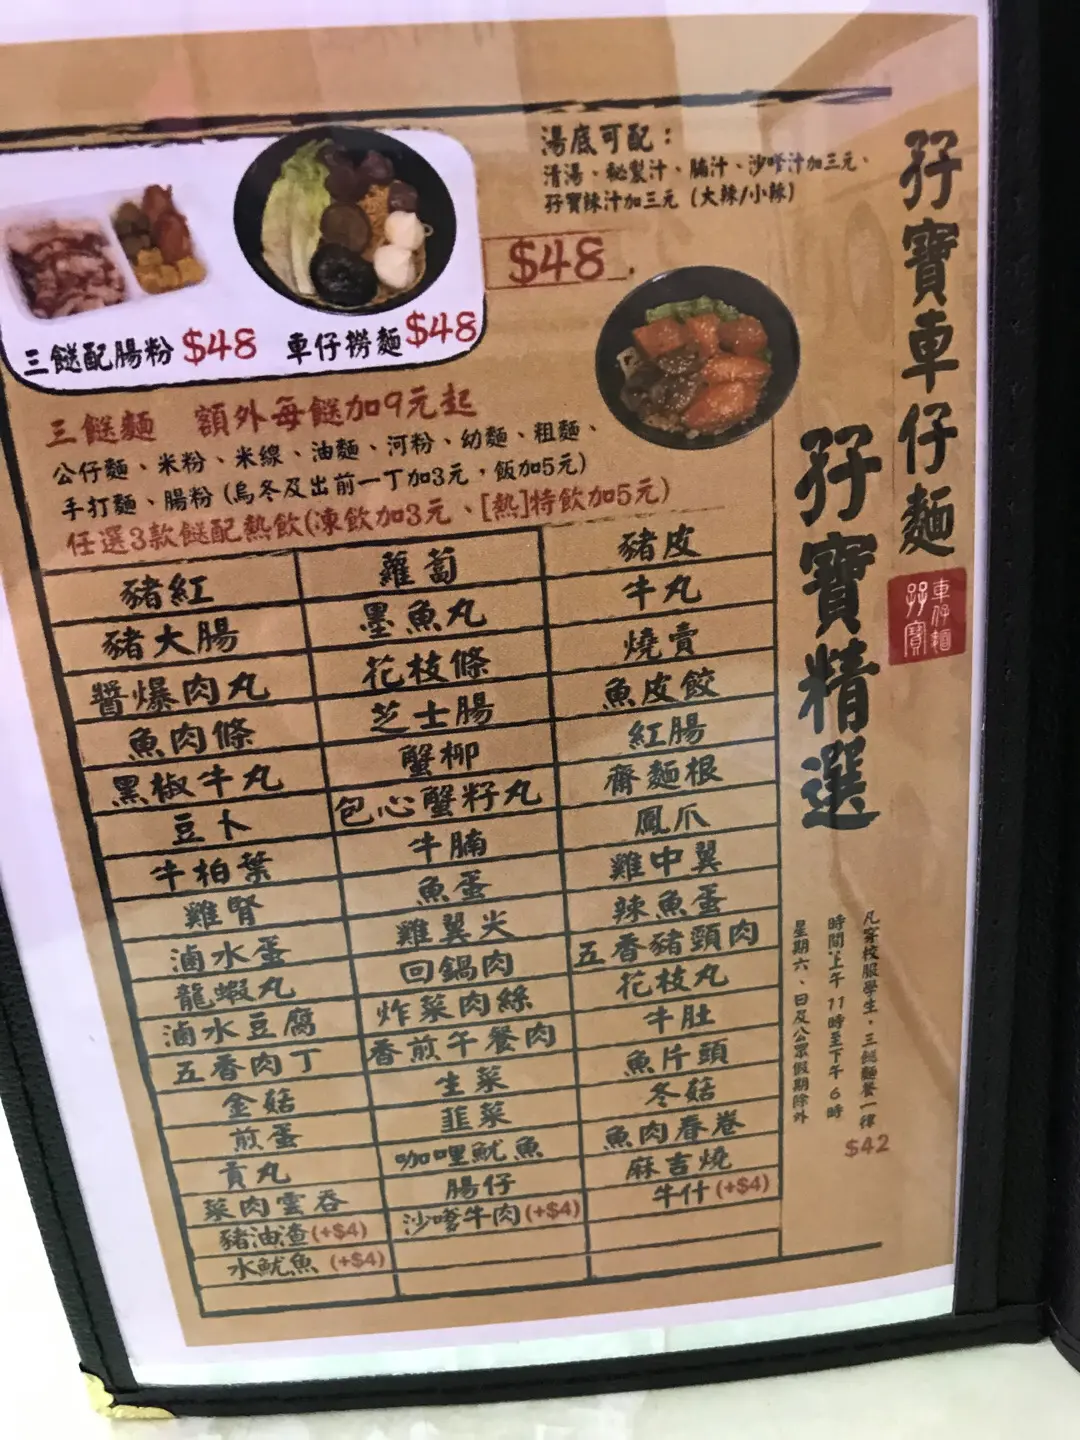 孖寶車仔麵
孖寶精選
車仔麵
孖寶
湯底可配：
清湯、秘製汁、腩汁、沙嗲汁加三元、
孖寶辣汁加三元 (大辣/小辣)
$48
三餸配腸粉 $48
車仔撈麵 $48
三餸麵 額外每餸加9元起
公仔麵、米粉、米線、油麵、河粉、幼麵、粗麵、
手打麵、腸粉 (烏冬及出前一丁加3元，飯加5元)
任選3款餸配熱飲(凍飲加3元、[熱]特飲加5元)
豬紅 蘿蔔 豬皮
豬大腸 墨魚丸 牛丸
醬爆肉丸 花枝條 燒賣
魚肉條 芝士腸 魚皮餃
黑椒牛丸 蟹柳 紅腸
豆卜 包心蟹籽丸 齋麵根
牛柏葉 牛腩 鳳爪
雞腎 魚蛋 雞中翼
滷水蛋 雞翼尖 辣魚蛋
龍蝦丸 回鍋肉 五香豬頸肉
滷水豆腐 炸菜肉絲 花枝丸
五香肉丁 香煎午餐肉 牛肚
金菇 生菜 魚片頭
煎蛋 韭菜 冬菇
貢丸 咖哩魷魚 魚肉春卷
菜肉雲吞 腸仔 麻吉燒
豬油渣(+$4) 沙嗲牛肉(+$4) 牛什(+$4)
水魷魚 (+$4)
凡穿校服學生，三餸麵餐一律
$42
時間上午 11時至下午 6時
星期六、日及公眾假期除外